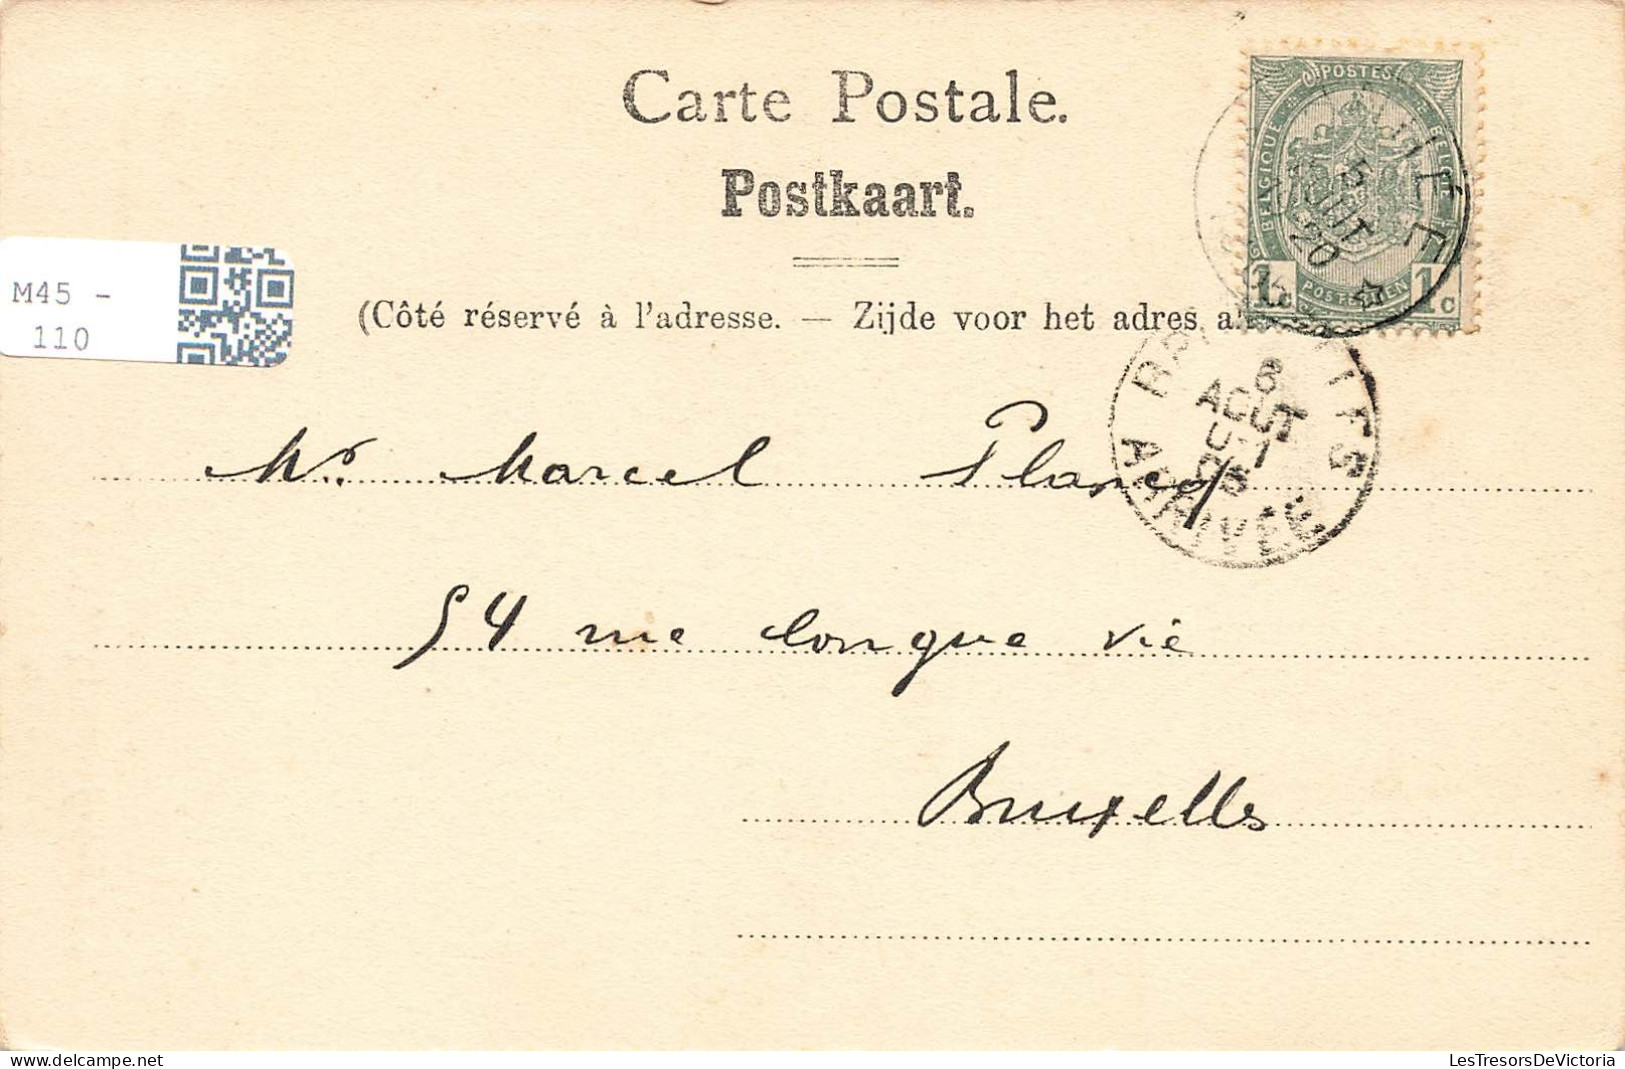 Carte Postale.
Postkaart.
(Côté réservé à l'adresse. — Zijde voor het adres
M45 -
110
POSTES
BELGIQUE BELGIË
1c POSTERIJEN 1c
5
AOUT
20
6
AOUT
ARRIVÉE
Mr. Marcel Plancq
54 rue longue vie
Bruxelles
LesTresorsDeVictoria